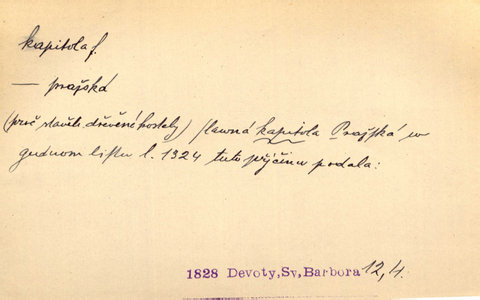 kapitola f.
— pražská
(proč stavěli dřevěné kostely) slawná kapitola Pražská w
gednom listu l. 1324 tuto přjčinu podala:
1828 Devoty,Sv,Barbora 12,4.